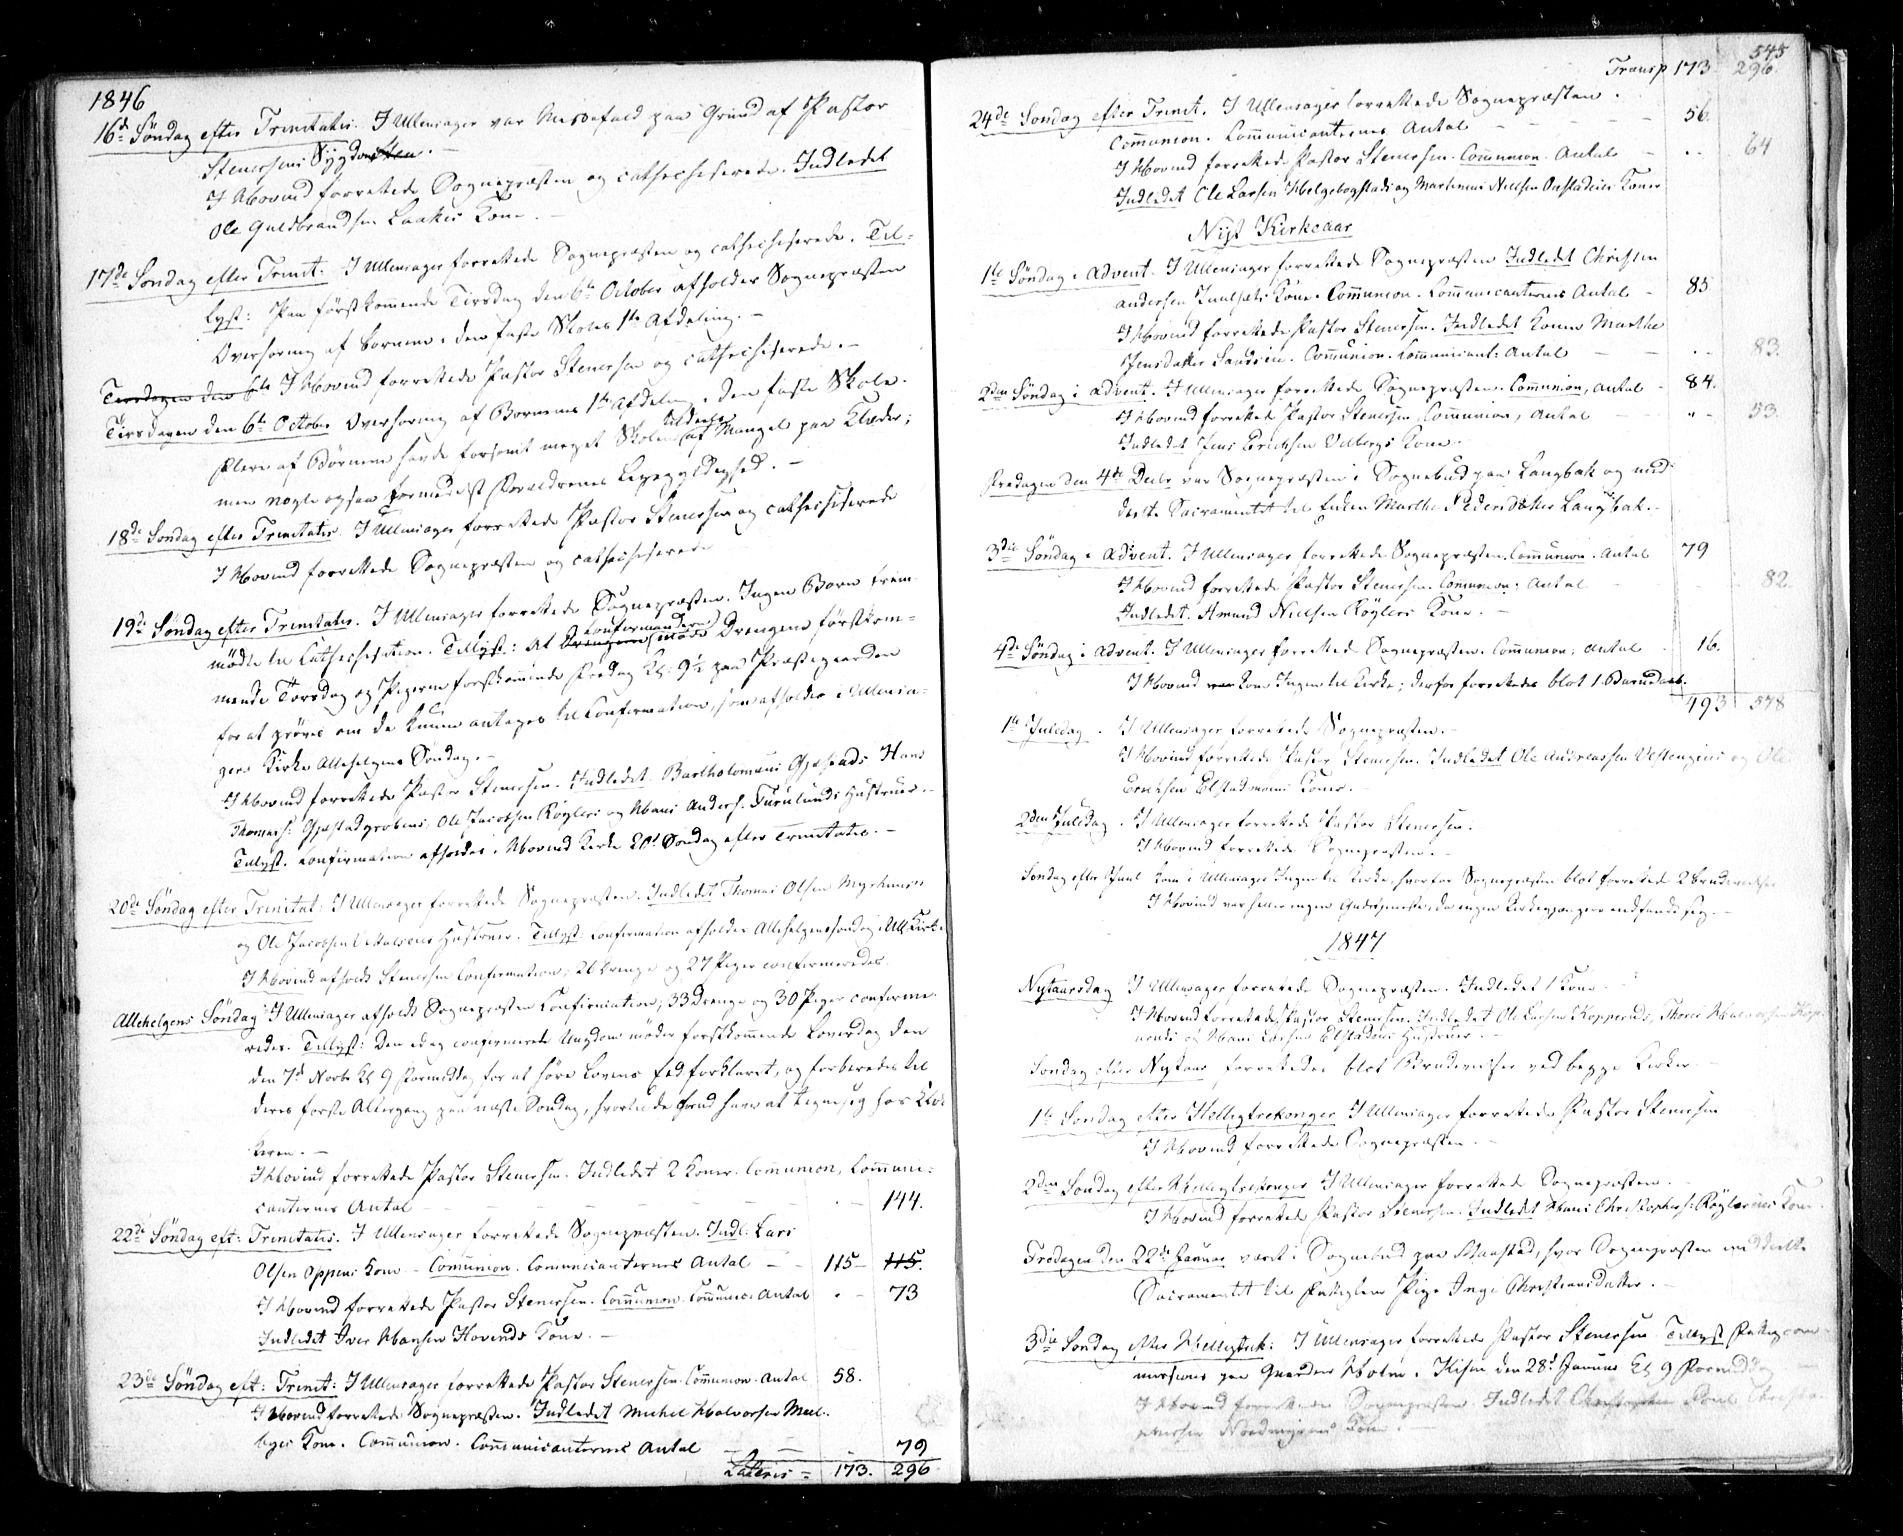 1846
16de Søndag efter Trinitatis. I Ullensager var Messefald paa Grund af Pastor
Stenersens Sygdom.
I Hovind forrettede Sognepræsten og cathechiserede. Indledet
Ole Guldbrandsen Laakes Kone.
17de Søndag efter Trinit: I Ullensager forrettede Sognepræsten og cathechiserede. Til-
lyst: Paa førstkommende Tirsdag den 6te October afholder Sognepræsten
Overhøring af Børnene i den faste Skoles 1ste Afdeling.
Tirsdagen den 6te I Hovind forrettede Pastor Stenersen og cathechiserede.
Tirsdagen den 6te October Overhøring af Børnenes 1ste Afdeling i den faste Skole.
Flere af Børnene havde forsømt meget Skolen tildeels af Mangel paa Klæder;
men nogle ogsaa formedelst Forældrenes Ligegyldighed.
18de Søndag efter Trinitatis. I Ullensager forrettede Pastor Stenersen og cathechiserede
I Hovind forrettede Sognepræsten og cathechiserede
19de Søndag efter Trinitatis. I Ullensager forrettede Sognepræsten. Ingen Børn frem-
mødte til Cathechisation. Tillyst: At Drengene Confirmanderne møde Drengene førstkom-
mende Torsdag og Pigerne førstkommende Fredag Kl: 9½ paa Præstegaarden
for at prøves om de kunne antages til Confirmation, som afholdes i Ullensa-
gers Kirke Allehelgens Søndag.
I Hovind forrettede Pastor Stenersen. Indledet Bartholomæus Gjestads Hans
Thomas: Gjestadgrobens, Ole Jacobsen Røglers og Hans Anders: Furulunds Hustruer.
Tillyst. Confirmation afholdes i Hovind Kirke 20de Søndag efter Trinitatis.
20de Søndag efter Trinitat: I Ullensager forrettede Sognepræsten. Indledet Thomas Olsen Myrhuus
og Ole Jacobsen Hustruer. Tillyst: Confirmation afholdes Allehelgenssøndag i Ull. Kirke
I Hovind afholdt Stenersen Confirmation; 26 Drenge og 27 Piger confirmeredes.
Allehelgens Søndag I Ullensager afholdt Sognepræsten Confirmation; 33 Drenge og 30 Piger confirme-
redes. Tillyst: Den idag confirmerede Ungdom møder førstkommende Løverdag den
den 7de Novbr Kl 9 Formiddag for at høre Lovens Eed forklaret, og forberedes til
deres første Altergang paa næste Søndag, hvortil de forud have at tegne sig hos Klok-
keren.
I Hovind forrettede Pastor Stenersen. Indledet 2 Koner. Communion, Commune-
canternes Antal 144.
22de Søndag eft: Trinitatis. I Ullensager forrettede Sognepræsten. Indl: Lars
Olsen Oppens Kone - Communion. Communicanternes Antal 115 115.
I Hovind forrettede Pastor Stenersen. Communion. Communic: Antal 73
Indledet Iver Hansen Hovinds Kone.
23de Søndag eft: Trinit: I Ullensager forrettede Pastor Stenersen. Communion. Antal 58.
I Hovind forrettede Sognepræsten. Indledet Michel Halvorsen Mel-
byes Kone. Communion. Communicanternes Antal 79
Lateris = 173. 296
545
Transp 173 296.
24de Søndag efter Trinit. I Ullensager forrettede Sognepræsten.
Communion. Communicanternes Antal 56.
I Hovind forrettede Pastor Stenersen. Communion. Antal 64
Indledet Ole Larsen Helgebogstads og Martinus Nielsen Koner
Nyt Kirkeaar
1ste Søndag i Advent. I Ullensager forrettede Sognepræsten Indledet Christen
Andersen Kone. Communion. Communicanternes Antal 85
I Hovind forrettede Pastor Stenersen. Indledet Konen Marthe
Jensdatter Sandsten. Communion. Communicant: Antal 83.
2den Søndag i Advent. I Ullensager forrettede Sognepræsten. Communion, Antal 84.
I Hovind forrettede Pastor Stenersen, Communion, Antal 53.
Indledet Jens Ericksen Velbergs Kone.
Fredagen den 4de Decbr var Sognepræsten i Sognebud paa Langbak og med-
deelte Sacramentet til Enken Marthe Pedersdatter Langbak.
3die Søndag i Advent. I Ullensager forrettede Sognepræsten. Communion. Antal 79
I Hovind forrettede Pastor Stenersen. Communion: Antal 82.
Indledet. Amund Nielsen Røglers Kone.
4de Søndag i Advent. I Ullensager forrettede Sognepræsten. Communion: Antal 16.
I Hovind kom Ingen til Kirke; derfor forrettedes blot 1 Barnedaab.
493 578
1ste Juledag. I Ullensager forrettede Sognepræsten.
I Hovind forrettede Pastor Stenersen. Indledet Ole Andreassen Vestengens og Ole
Ericksen Elstadmoens Koner.
2den Juledag. I Ullensager forrettede Pastor Stenersen.
I Hovind forrettede Sognepræsten.
Søndag efter Juul kom i Ullensager Ingen til Kirke, hvorfor Sognepræsten blot forrettede 2 Brudevielser
I Hovind var heller ingen Gudstjeneste, da ingen Kirkegjængere indfandt sig.
1847
Nytaarsdag I Ullensager forrettede Sognepræsten. Indledet 1 Kone.
I Hovind forrettede Pastor Stenersen. Indledet Ole Larsen Kopperuds, Thorer Halvorsen Kop-
peruds og Hans Larsen Elstadens Hustruer.
Søndag efter Nytaar forrettedes blot Brudevielser ved begge Kirker.
1ste Søndag efter Helligtrekonger I Ullensager forrettede Pastor Stenersen
I Hovind forrettede Sognepræsten.
2den Søndag efter Helligtrekonger I Ullensager forrettede Sognepræsten.
I Hovind forrettede Pastor Stenersen. Indledet Hans Christophers: Røglernes Kone.
Fredagen den 22de Januar været i Sognebud paa Maastad, hvor Sognepræsten meddeelte
Sacramentet til Pige Inge Christiansdatter.
3die Søndag efter Helligtrek: I Ullensager forrettede Pastor Stenersen. Tillyst Fattigcom-
missions paa Gaarden Holm i Kisen den 28de Januar Kl 9 Formiddag
I Hovind forrettede Sognepræsten. Indledet Poul Christo-
phersen Nordmoens Kone.